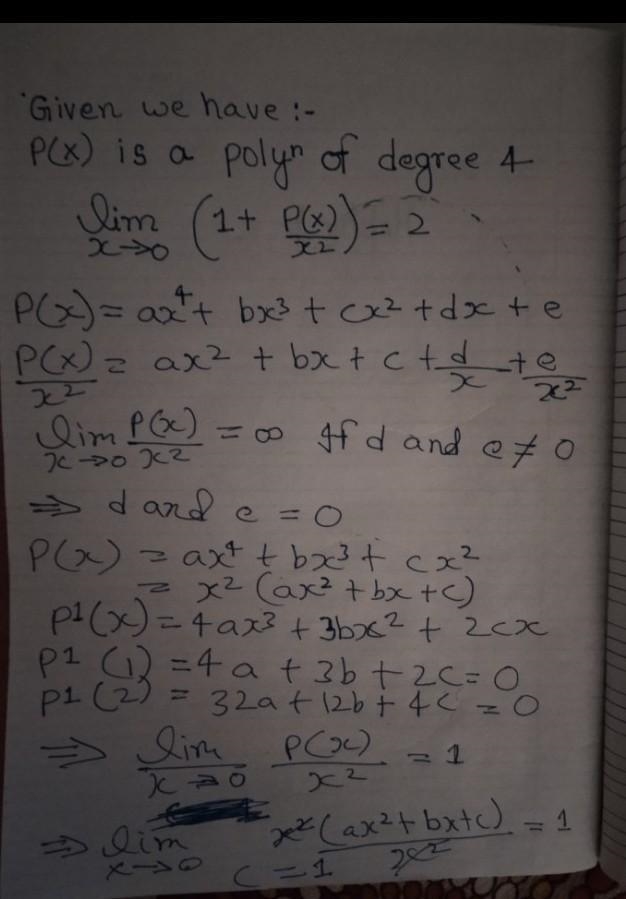 Given we have :-
P(x) is a polyⁿ of degree 4
lim x→0 (1+ P(x)/x²) = 2
P(x) = ax⁴ + bx³ + cx² + dx + e
P(x)/x² = ax² + bx + c + d/x + e/x²
lim x→0 P(x)/x² = ∞ If d and e ≠ 0
⇒ d and e = 0
P(x) = ax⁴ + bx³ + cx²
= x² (ax² + bx + c)
P1(x) = 4ax³ + 3bx² + 2cx
P1 (1) = 4a + 3b + 2c = 0
P1 (2) = 32a + 12b + 4c = 0
⇒ lim x→0 P(x)/x² = 1
⇒ lim x→0 x²(ax² + bx + c)/x² = 1
c = 1